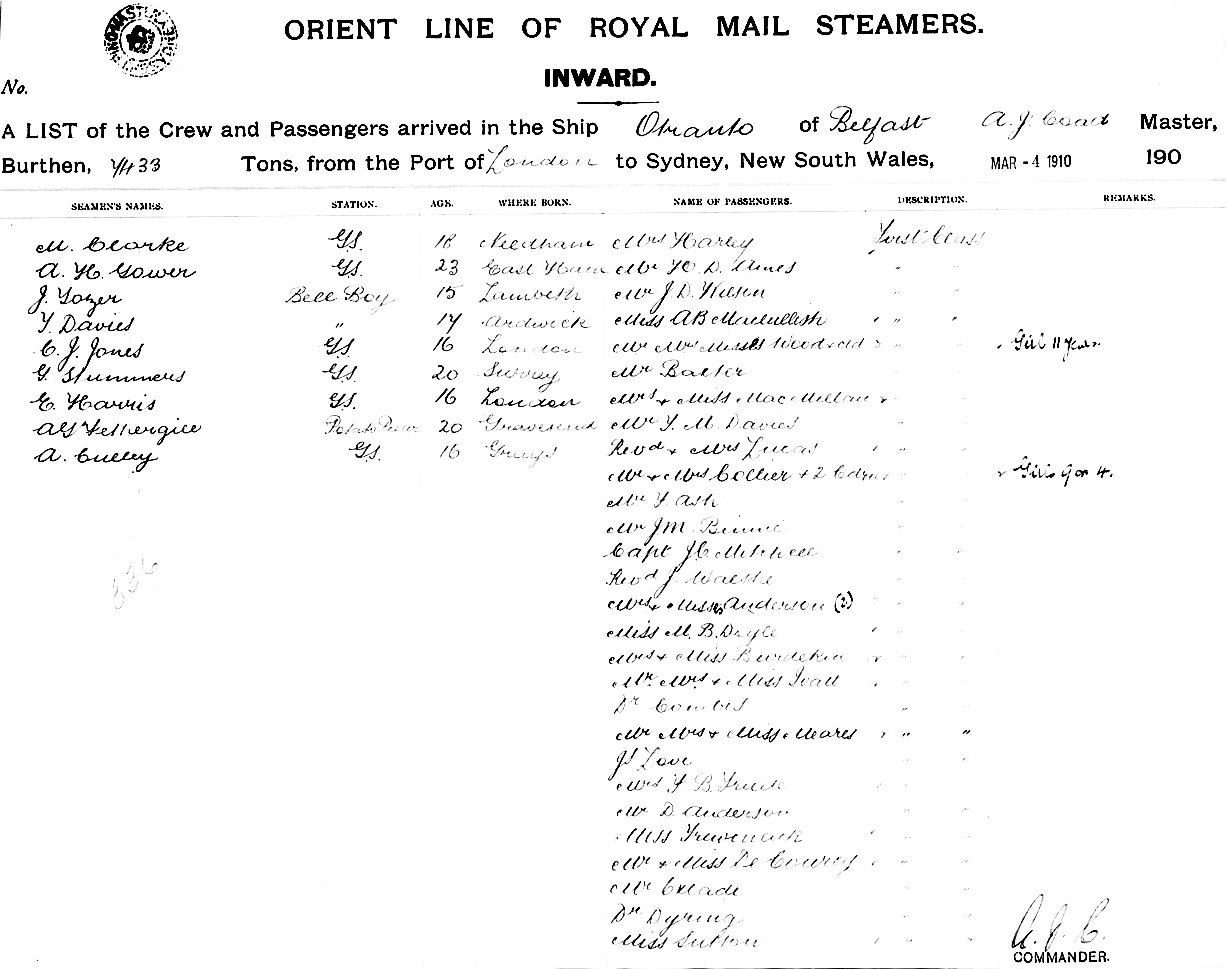 ORIENT LINE OF ROYAL MAIL STEAMERS.
INWARD.
No.
A LIST of the Crew and Passengers arrived in the Ship Otranto of Belfast A. J. Coad Master,
Burthen, 7433 Tons, from the Port of London to Sydney, New South Wales, MAR -4 1910 190
SEAMEN'S NAMES. STATION. AGE. WHERE BORN. NAME OF PASSENGERS. DESCRIPTION. REMARKS.
M. Clarke G.S. 18 Needham Mrs Harley First Class
A. H. Gower G.S. 23 East Ham Mr H. D. Ames " "
J. Tozer Bell Boy 15 Lambeth Mr J. D. Wilson " "
T. Davies " 17 Ardwick Miss AB MacCullish " "
C. J. Jones G.S. 16 London Mr Mrs Misses " " Girl 11 years
G. Summers G.S. 20 Surrey Mr Baxter " "
E. Harris G.S. 16 London Mrs + Miss MacMillan " "
AG Fothergill 20 Gravesend Mr T. M. Davies " "
A. Culley G.S. 16 Grays Revd + Mrs Lucas " "
Mr + Mrs Collier + 2 Cdren " " Girls 9 or 4.
Mr F. Ash " "
Mr J M. Binnie " "
Capt J C Mitchell " "
Revd J. Walshe " "
336
Mrs + Misses Anderson (2) " "
Miss M. B. Doyle " "
Mrs + Miss Burdekin " "
Mr Mrs + Miss Ivall " "
Dr Combes " "
Mr Mrs + Miss Meares " "
Js Love " "
Mrs F B. Freele " "
Mr D. Anderson " "
Miss Trewenack " "
Mr + Miss De Courcy " "
Mr " "
Dr Dyring " "
Miss Sutton " "
A. J. C.
COMMANDER.